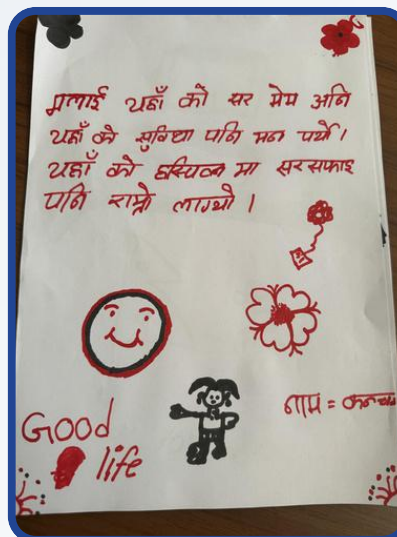 मलाई यहाँ को सर मेम अनि
यहाँ को सुविधा पनि मन पर्यो।
यहाँ को हस्पिटल मा सरसफाइ
पनि राम्रो लाग्यो ।
नाम =
Good
life